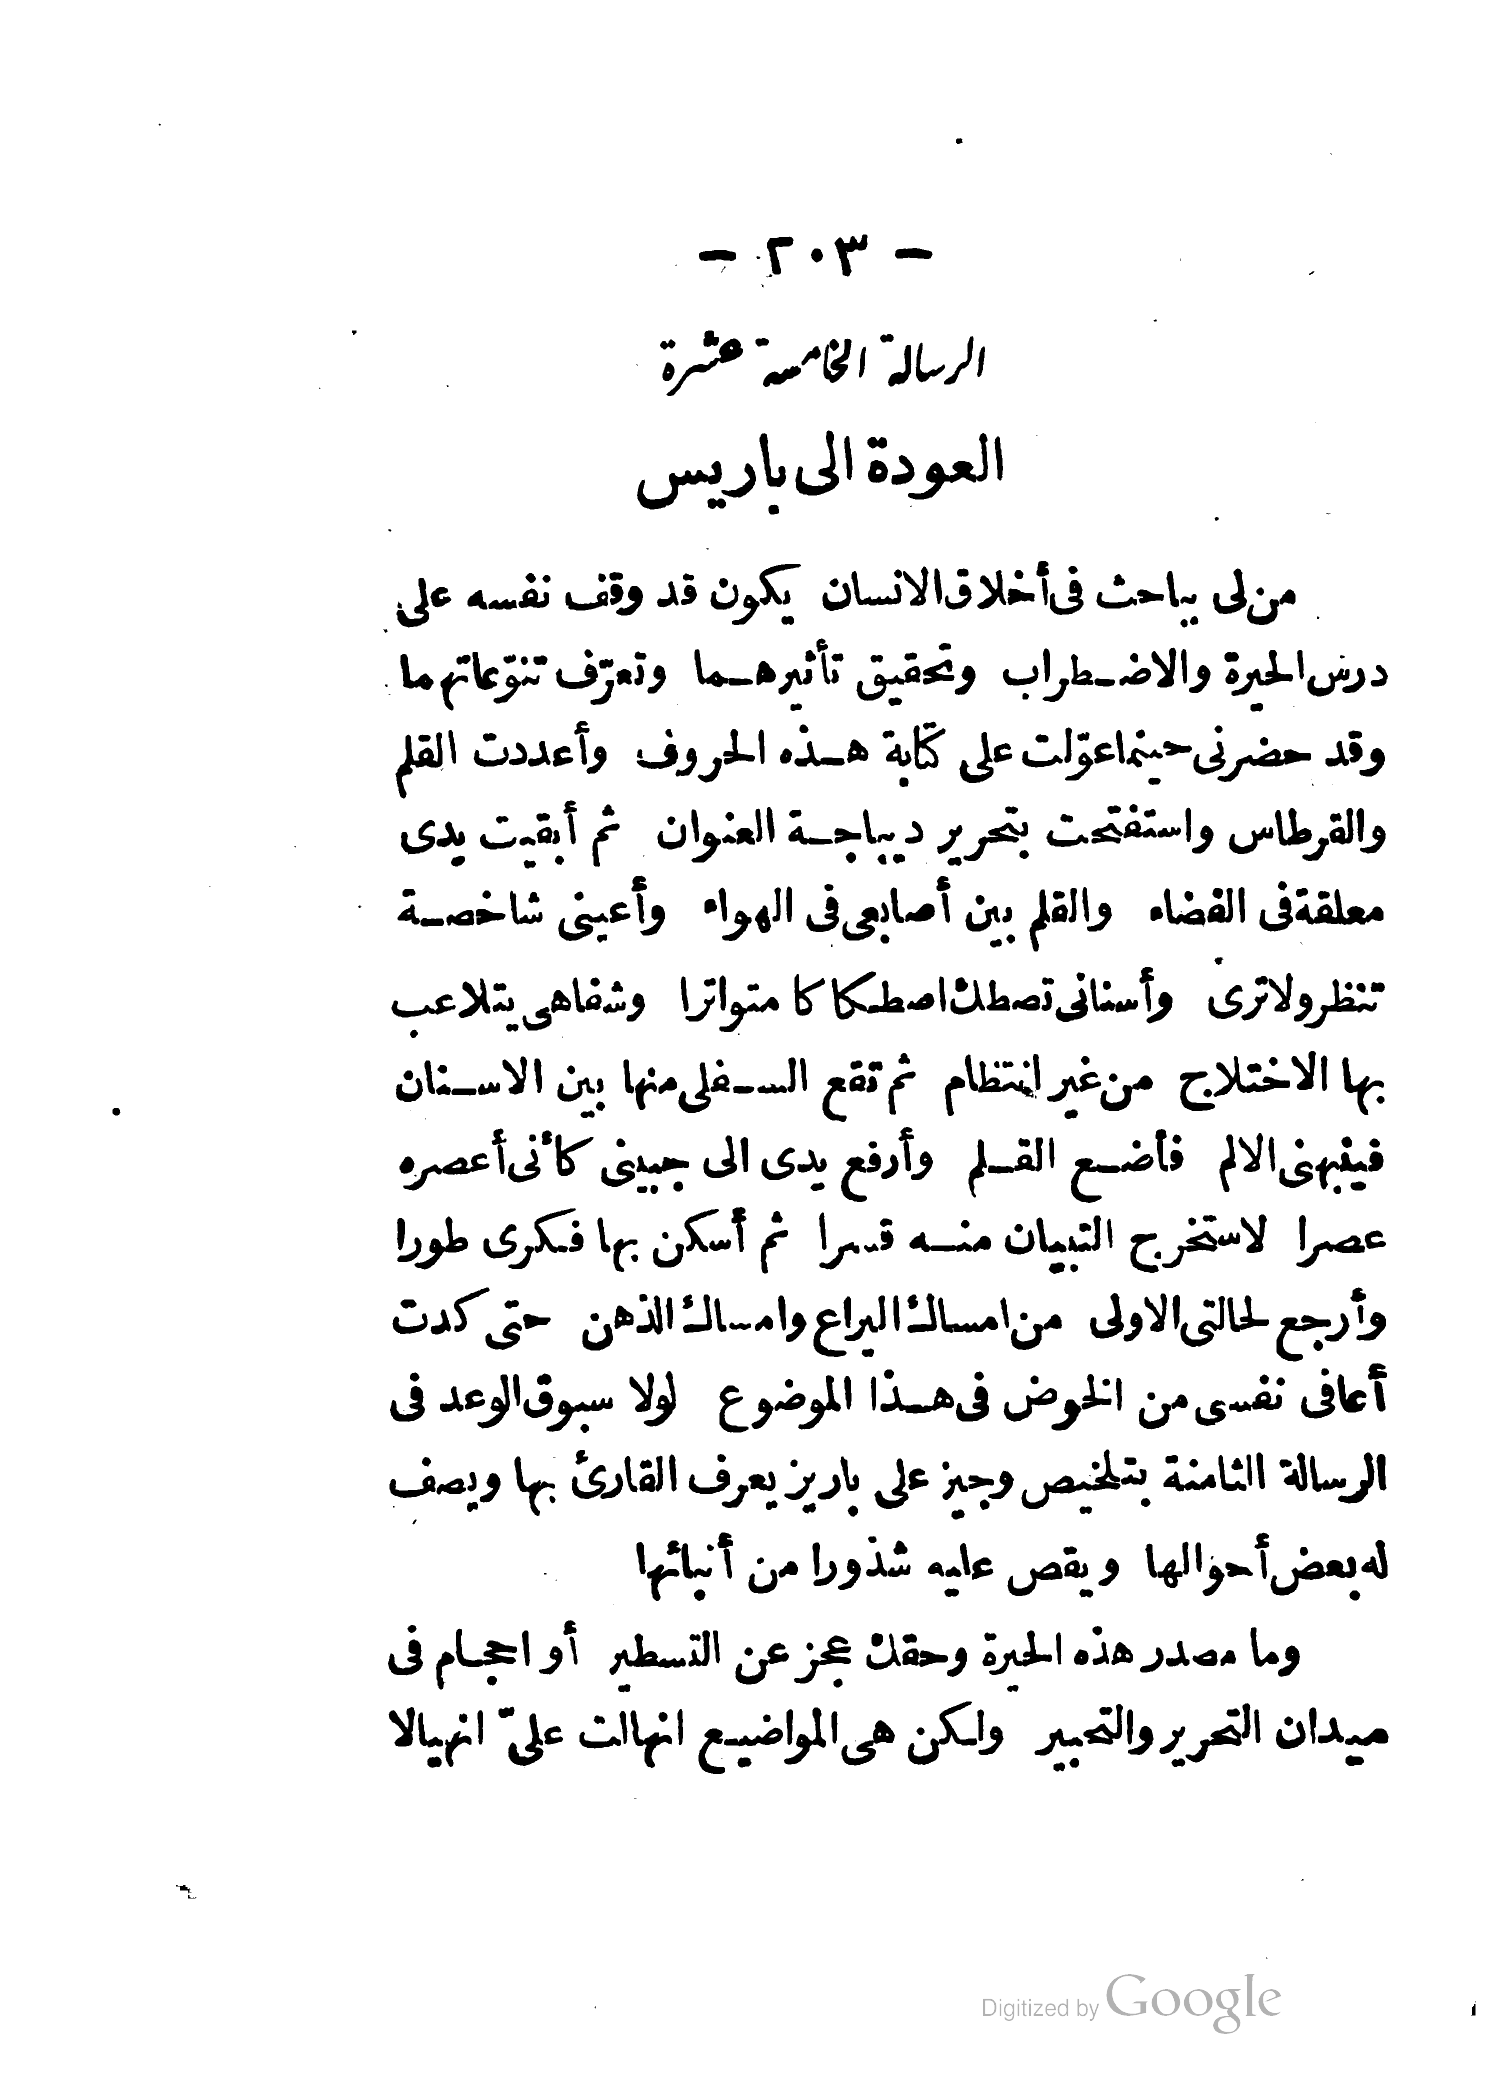 — ٢٠٣ —
الرسالة الخامسة عشرة
العودة الى باريس
من لى بباحث فى أخلاق الانسان يكون قد وقف نفسه على
درس الحيرة والاضطراب وتحقيق تأثيرهما وتعرّف تنوّعاتهما
وقد حضرنى حينما عوّلت على كتابة هذه الحروف وأعددت القلم
والقرطاس واستفتحت بتحرير ديباجة العنوان ثم أبقيت يدى
معلقة فى الفضاء والقلم بين أصابعى فى الهواء وأعينى شاخصة
تنظر ولا ترى وأسنانى تصطك اصطكاكا متواترا وشفاهى يتلاعب
بها الاختلاج من غير انتظام ثم تقع السفلى منها بين الاسنان
فينبهنى الالم فأضع القلم وأرفع يدى الى جبينى كأنى أعصره
عصرا لاستخرج التبيان منه قسرا ثم أسكن بها فكرى طورا
وأرجع لحالتى الاولى من امساك اليراع وامساك الذهن حتى كدت
أعافى نفسى من الخوض فى هذا الموضوع لولا سبوق الوعد فى
الرسالة الثامنة بتلخيص وجيز على باريز يعرف القارئ بها ويصف
له بعض أحوالها ويقص عليه شذورا من أنبائها
وما مصدر هذه الحيرة وحقك عجز عن التسطير أو احجام فى
ميدان التحرير والتحبير ولكن هى المواضيع انهالت علىّ انهيالا
Digitized by Google